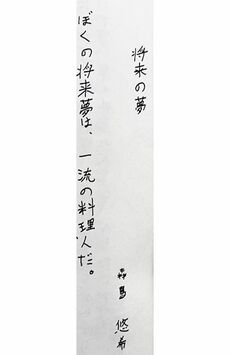 将来の夢
悠希
ぼくの将来夢は、一流の料理人だ。